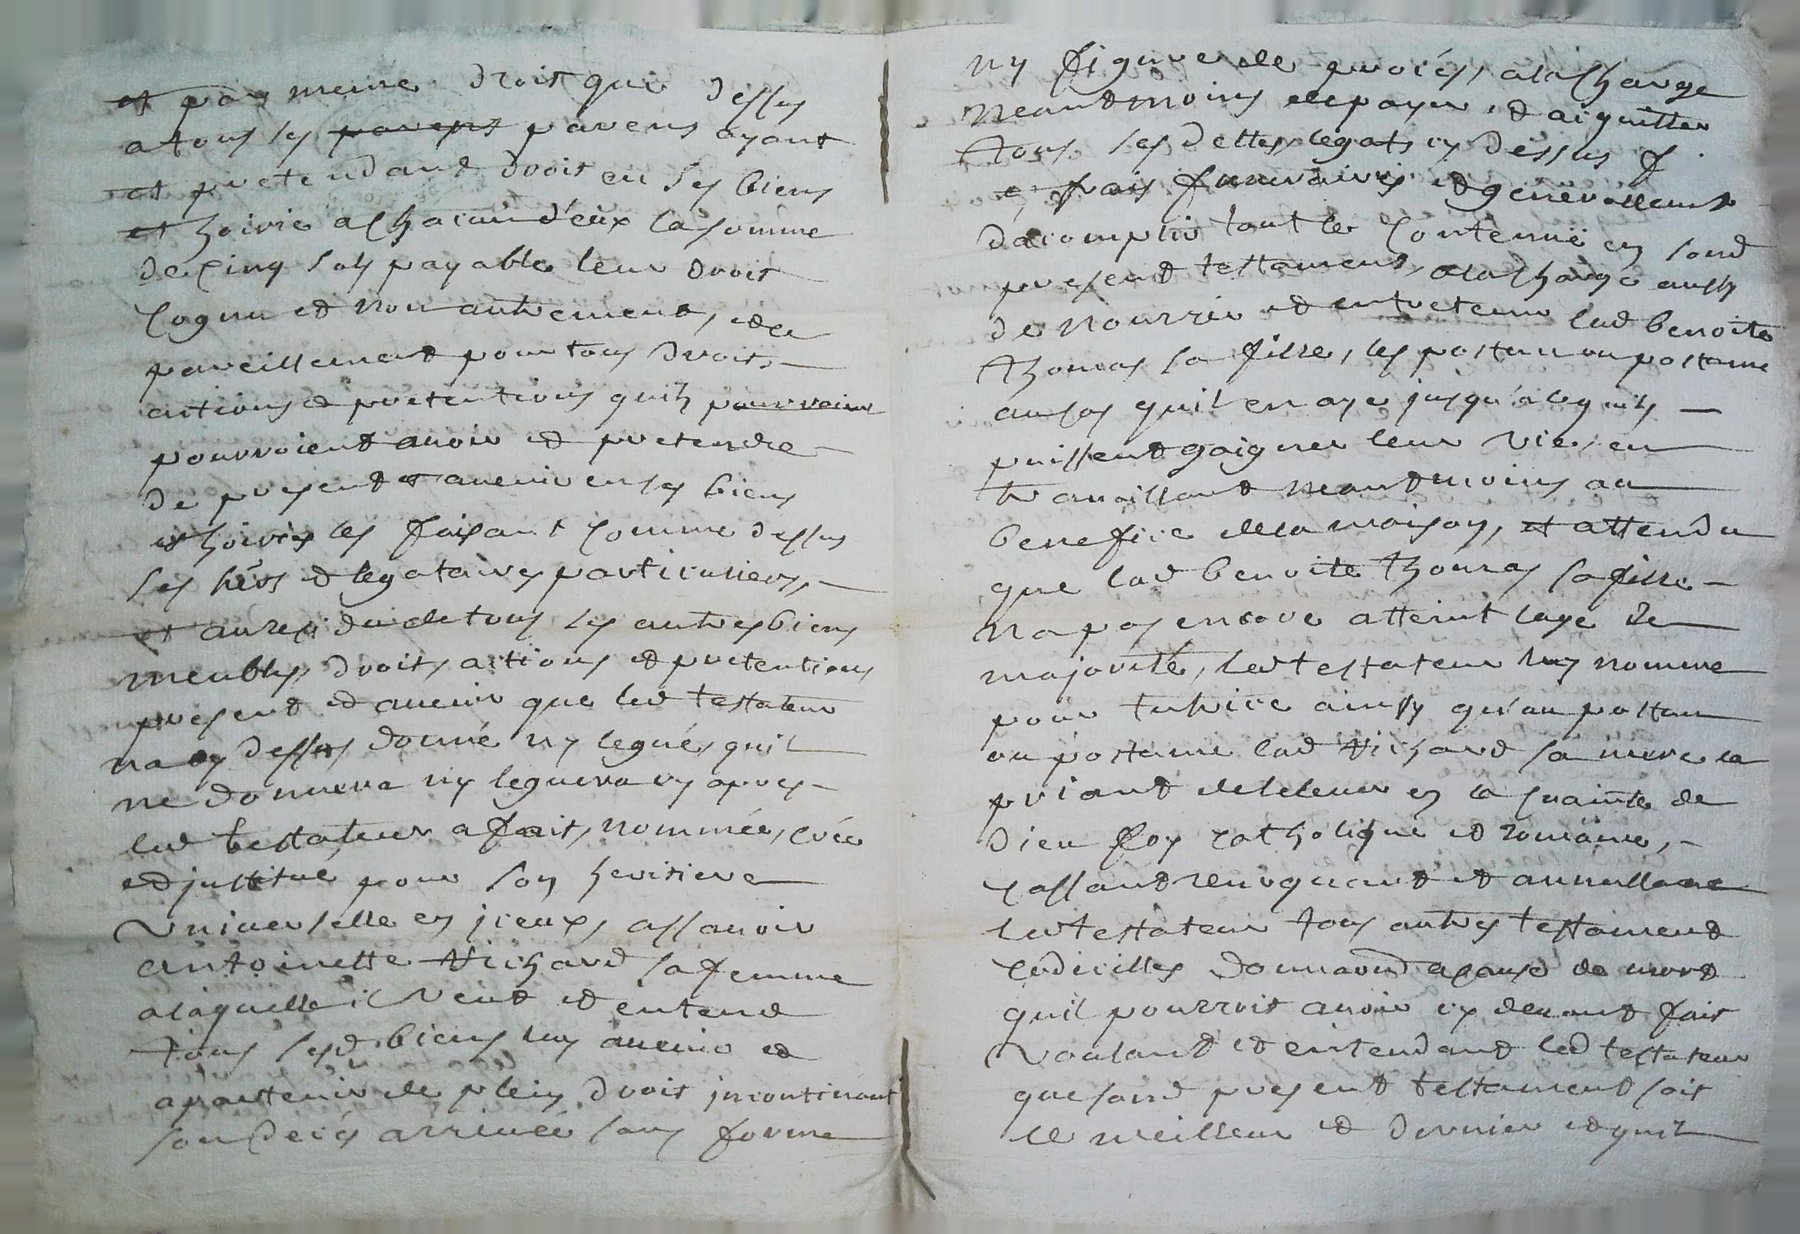 et par meme droit que dessus
a tous ses parens parens ayant
et pretendant droit en ses biens
et hoirie a chacun d'eux la somme
de cinq sols payable leur droit
cognu et non autrement, et ce
pareillement pour tous droits,
actions et pretentions quils pourroient
pourroient avoir et pretendre
de present et avenir en ses biens
et hoirie les faisant comme dessus
ses hérs et legataires particuliers,
et au residu de tous ses autres biens
meubles, droits, actions et pretentions
present et avenir que led testateur
na cy dessus donné ny legué, quil
ne donnera ny leguera cy apres
led testateur a fait, nommée, créé
et justitué pour son heritiere
universelle en jceux, assavoir
antoinette Richard sa femme
a laquelle il veut et entend
tous sesd biens luy avenir et
apartenir de plein droit jncontinant
son deces arrivée sans forme
ny figure de procés, a la charge
neantmoins de payer et aiquitter
tous ses dettes, legats cy dessus f.
et frais funerairis et generallement
dacomplir tout le contenuë en sond
present testament, a la charge aussy
de nourrir et entretenir lad benoite
thomas sa fille, les postum ou postume
au cas quil en aye jusqu'a ce quils
puissent gaigner leur vie, en
travaillant neantmoins au
benefice de la maison, et attendu
que lad benoite thomas sa fille
na pas encore atteint lage de
majorité, led testateur luy nomme
pour tutrice ainsy qu'au postum
ou postume lad Richard sa mere la
priant de l'elever en la crainte de
dieu foy catholique et romaine,
cassant revoquant et annullant
led testateur tous autres testament
codicilles donnaond a cause de mort
quil pourroit avoir cy devant fait
voulant et entendant led testateur
que sond present testament soit
le meilleur et dernier et quil